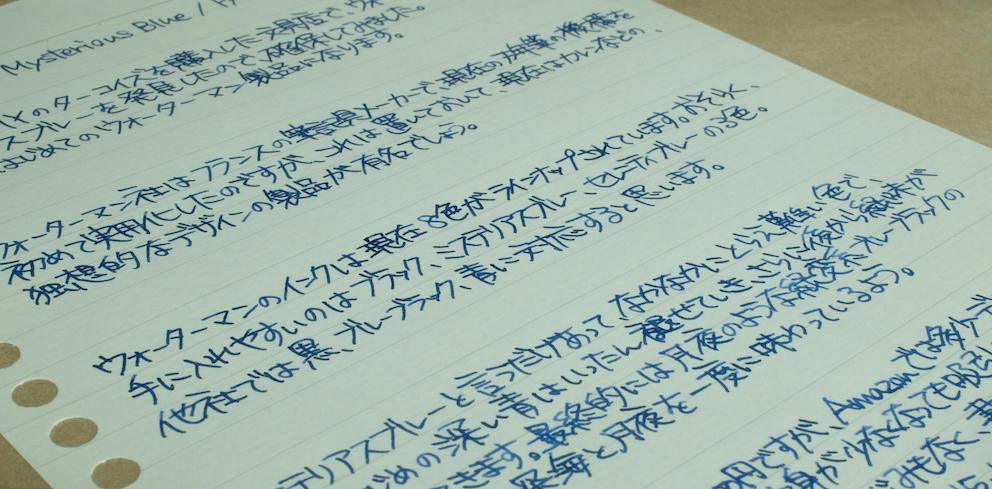 Mysterious Blue /
のターコイズを購入した文房店で、ウォ
スブルーを発見したので、
はじめてのウォーターマン製品になります。
ウォーターマン社はフランスの メーカーで、現在の万年筆の機構を
初めて実用化したのですが、これは置いておいて、現在は
独想的なデザインの製品が有名でしょう。
ウォーターマンのインクは現在8色がラインナップされています。おそらく、
手に入れやすいのはブラック、ミステリアスブルー、セレニティブルーの3色。
他社では黒、ブルーブラック、青に対応すると思います。
テリアスブルーと言っただけあって なかなかにとらえ難い色で、
じめの深い青はいったん褪せていき、さらに後から緑味が
きます。最終的には月夜のような ブルーブラックの
と月夜を一度に味わっているよう。
円ですが、Amazonでは
なっても